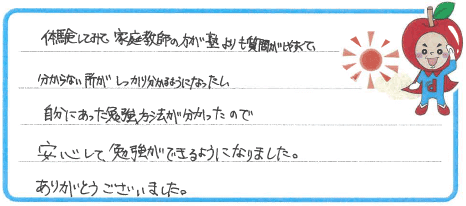 体験してみて家庭教師の方が塾よりも質問がしやすくて、
分からない所がしっかり分かるようになったし、
自分にあった勉強方法が分かったので
安心して勉強ができるようになりました。
ありがとうございました。